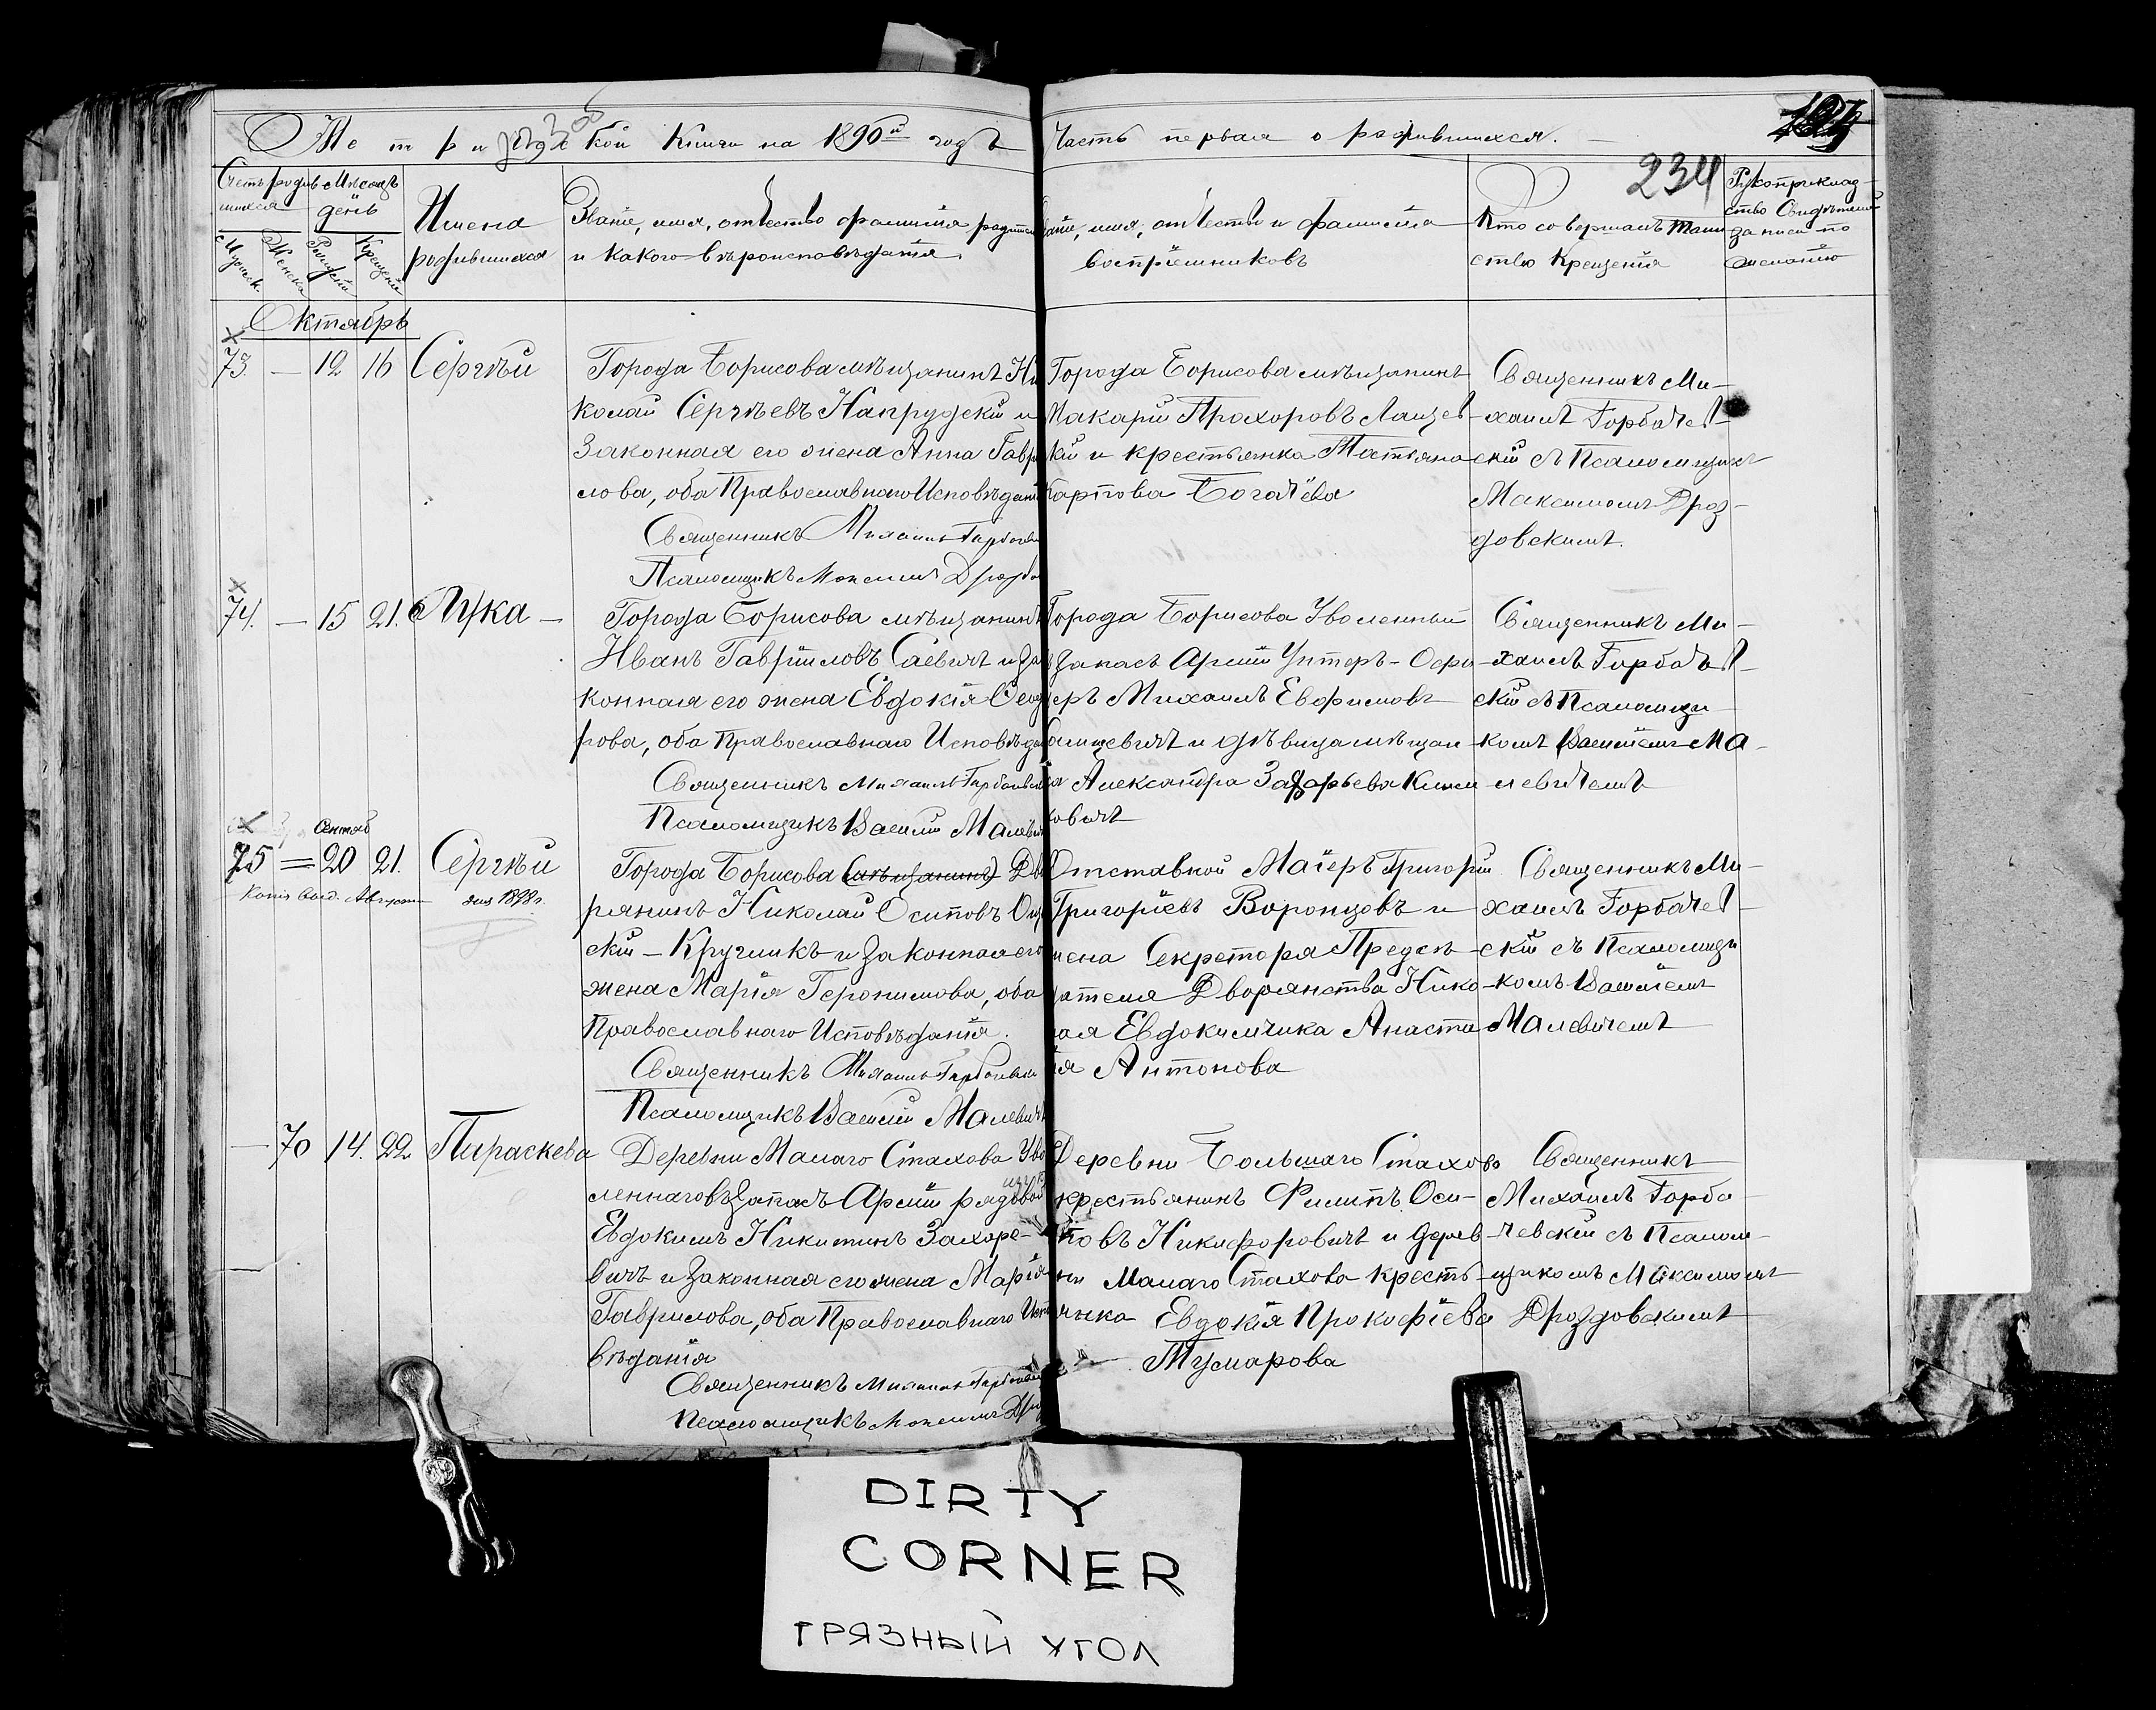 Метрической Книги на 1890й годъ Часть первая о родившихся.
234
Счетъ родившихся
Мѣсяцъ день
Мужеск.
Женска
Рожденія
Крещенія
Имена
родившихся
Званіе, имя, отчество фамилія родител
и какого вѣроисповѣданія
Званіе, имя, отчество и фамилія
воспріемниковъ
Кто совершалъ таин
ство Крещенія
Рукоприклад-
ство Свидѣтелей
записи по
желанію
Октябрь
73. — 12 16 Сергѣй
Города Борисова мѣщанинъ Ни
колай Сергѣевъ Напрудскій и
Законная его жена Анна Гаври
лова, оба Православнаго Исповѣдані
Священникъ Михаилъ Горбачев
Псаломщикъ Максимъ Дроздо
Города Борисова мѣщанинъ
Макарій Прохоровъ Лащев
кій и крестьянка Татьяна
Карпова Богачёва
Священникъ Ми-
хаилъ Горбачев-
скій съ Псаломщик
Максимомъ Дроз-
довскимъ.
74. — 15 21. Лука —
Города Борисова мѣщанинъ
Иванъ Гавріиловъ Саевичъ и За
конная его жена Евдокія Ѳеод
рова, оба Православнаго Исповѣда
Священникъ Михаилъ Горбачевск
Псаломщикъ Василій Малевич
Города Борисова Уволенный
въ Запасъ Арміи Унтеръ-Офи
церъ Михаилъ Евфимовъ
и дѣвица мѣщан
ка Александра Захарьева Клим
ковичъ
Священникъ Ми-
хаилъ Горбачев-
скій съ Псаломщи
комъ Василіемъ Ма-
левичемъ
Сентяб
75 = 20 21. Сергѣй
Копія выд. Август дня 1898 г.
Города Борисова (мѣщанинъ) Дво
рянинъ Николай Осиповъ
скій - Кругликъ и Законная его
жена Марія Геронимова, оба
Православнаго Исповѣданія.
Священникъ Михаилъ Горбачевски
Псаломщикъ Василій Малевичъ
Отставной Маіеръ Григорій
Григоріевъ Воронцовъ и
жена Секретаря Предсѣ-
дателя Дворянства Нико-
лая Евдокимчика Анаста
ія Антонова
Священникъ Ми-
хаилъ Горбачев-
скій съ Псаломщи
комъ Василіемъ
Малевичемъ
— 70 14. 22 Параскева
Деревни Малаго Стахова Уво
леннаго въ Запасъ Арміи рядовой
Евдокимъ Никитинъ Захоре-
вичъ и Законная его жена Марія
Гаврилова, оба Православнаго Испо
вѣданія
Священникъ Михаилъ Горбачевскій
Псаломщикъ Максимъ Дроз
Деревни Большаго Стахова
крестьянинъ Филипъ Оси-
повъ Никифоровичъ и дерев
ни Малаго Стахова кресть-
янка Евдокія Прокофіева
Тумарова
Священникъ
Михаилъ Горба
чевскій съ Псалом-
щикомъ Максимомъ
Дроздовскимъ
DIRTY
CORNER
ГРЯЗНЫЙ УГОЛ